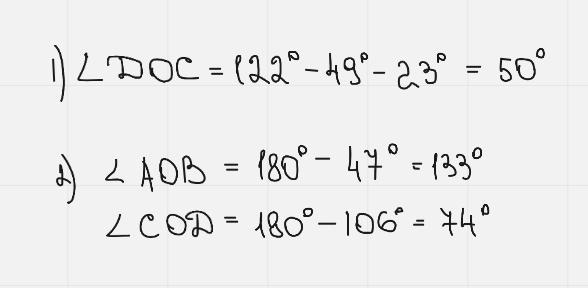 1) ∠DOC = 122° - 49° - 23° = 50°
2) ∠AOB = 180° - 47° = 133°
∠COD = 180° - 106° = 74°